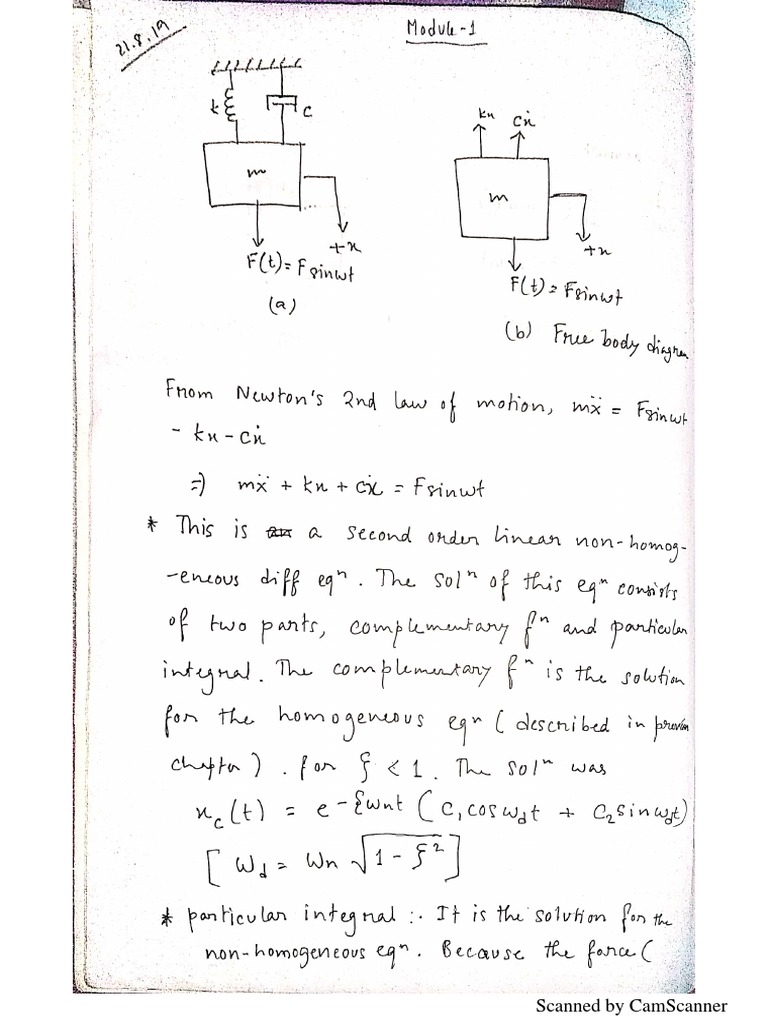 21.8.19
Module-1
k
c
m
+x
F(t)= F sinωt
(a)
kx
cẋ
m
+x
F(t)= Fsinωt
(b) Free body diagram
From Newton's 2nd law of motion, mẍ = Fsinωt
- kx - cẋ
=) mẍ + kx + cẋ = Fsinωt
* This is a second order linear non-homog-
-eneous diff eqⁿ. The solⁿ of this eqⁿ consists
of two parts, complementary fⁿ and particular
integral. The complementary fⁿ is the solution
for the homogeneous eqⁿ (described in
chapter). for ξ < 1. The solⁿ was
x_c(t) = e^-ξωnt (C₁cosω_dt + C₂sinω_dt)
[ω_d = ωn √1-ξ²]
* particular integral :- It is the solution for the
non-homogeneous eqⁿ. Because the force (
Scanned by CamScanner